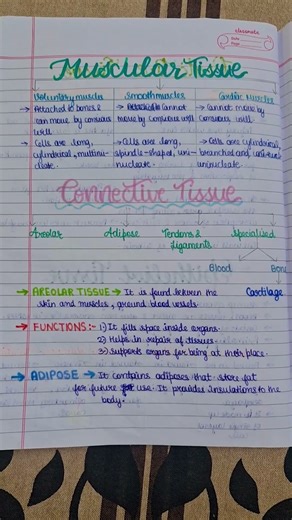 classmate
Date
Page
Muscular Tissue
Voluntary muscles Smooth muscles Cardiac Muscles
→ Attached to bones & → Cannot → Cannot move by
can move by consious move by Consious will. Consious will.
will
→ Cells are long, → Cells are long, → Cells are cylinderical,
cylindrical, multinu- spindle-shaped, uni- branched and
cleate. nucleate. uninucleate.
Connective Tissue
Areolar Adipose Tendons & Specialised
Ligaments
Blood Bone
→ AREOLAR TISSUE → It is found between the Cartilage
skin and muscles, around blood vessels
→ FUNCTIONS:- 1) It fills space inside organs.
2) Helps in repair of tissues.
3) Supports organs for being at their place.
→ ADIPOSE → It contains adiposes that store fat
for future use. It provides insulations to the
body.